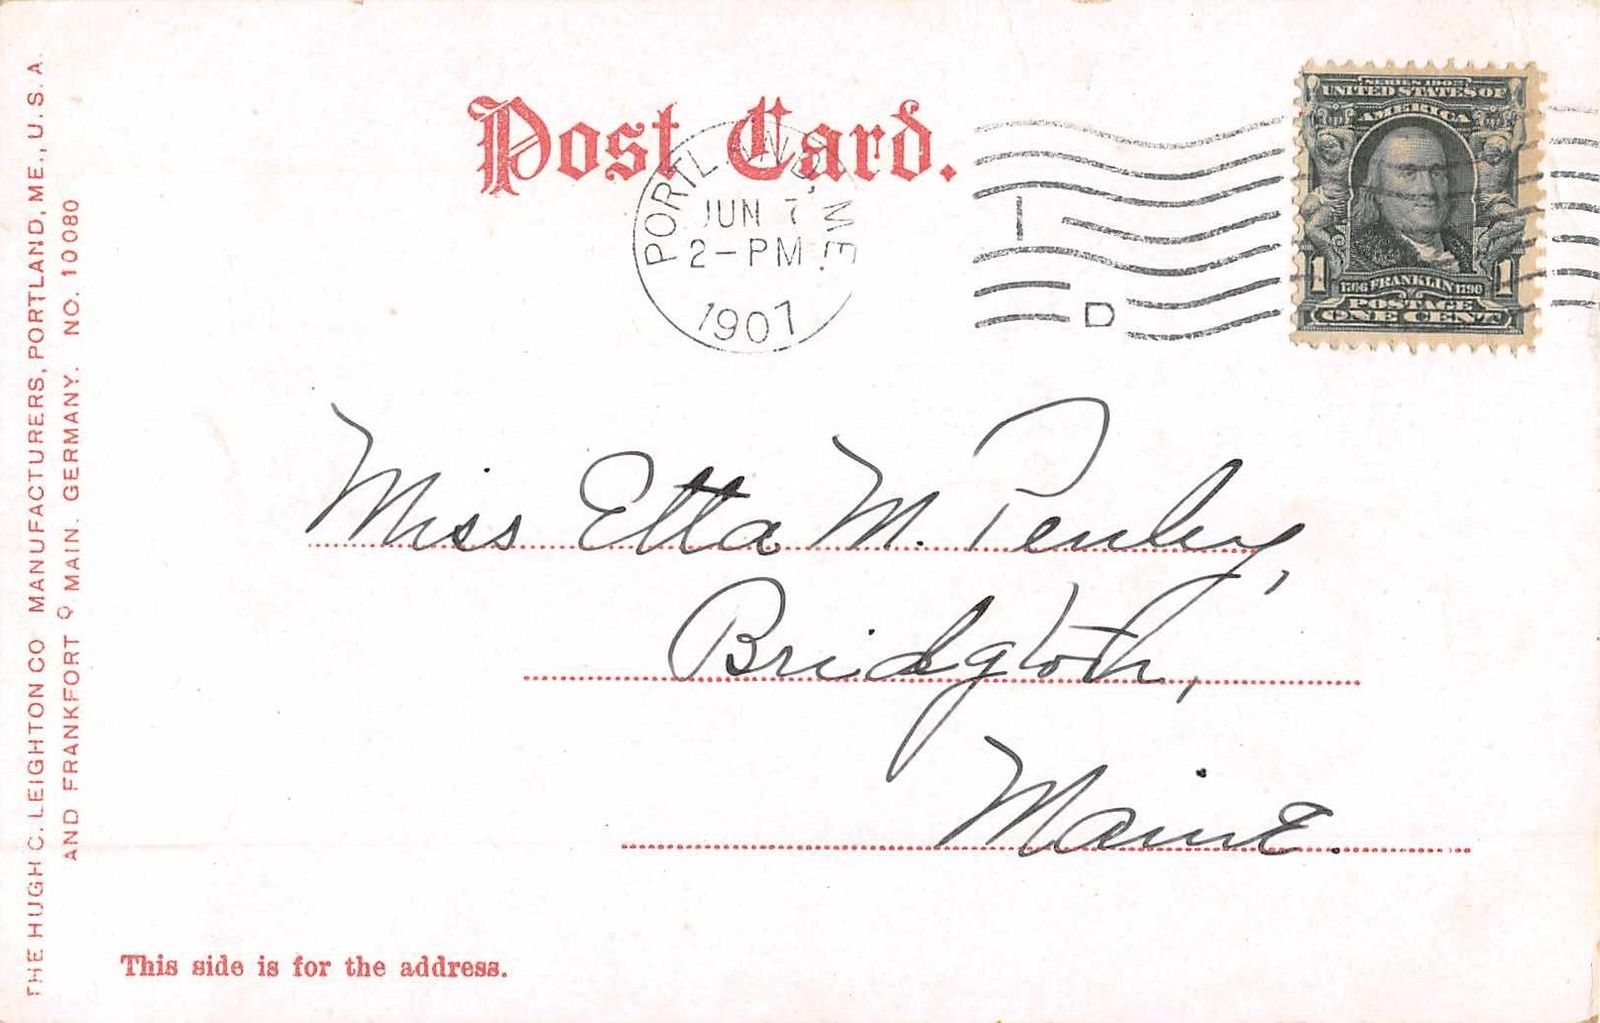 THE HUGH C. LEIGHTON CO MANUFACTURERS, PORTLAND, ME., U.S.A
AND FRANKFORT ♀ MAIN. GERMANY. NO. 10080
Post Card.
PORTLAND, ME.
JUN 7
2-PM
1907
I
D
SERIES 1902
UNITED STATES OF
AMERICA
1 1
1706 FRANKLIN 1790
POSTAGE
ONE CENT
Miss Etta M. Penley,
Bridgton,
Maine.
This side is for the address.